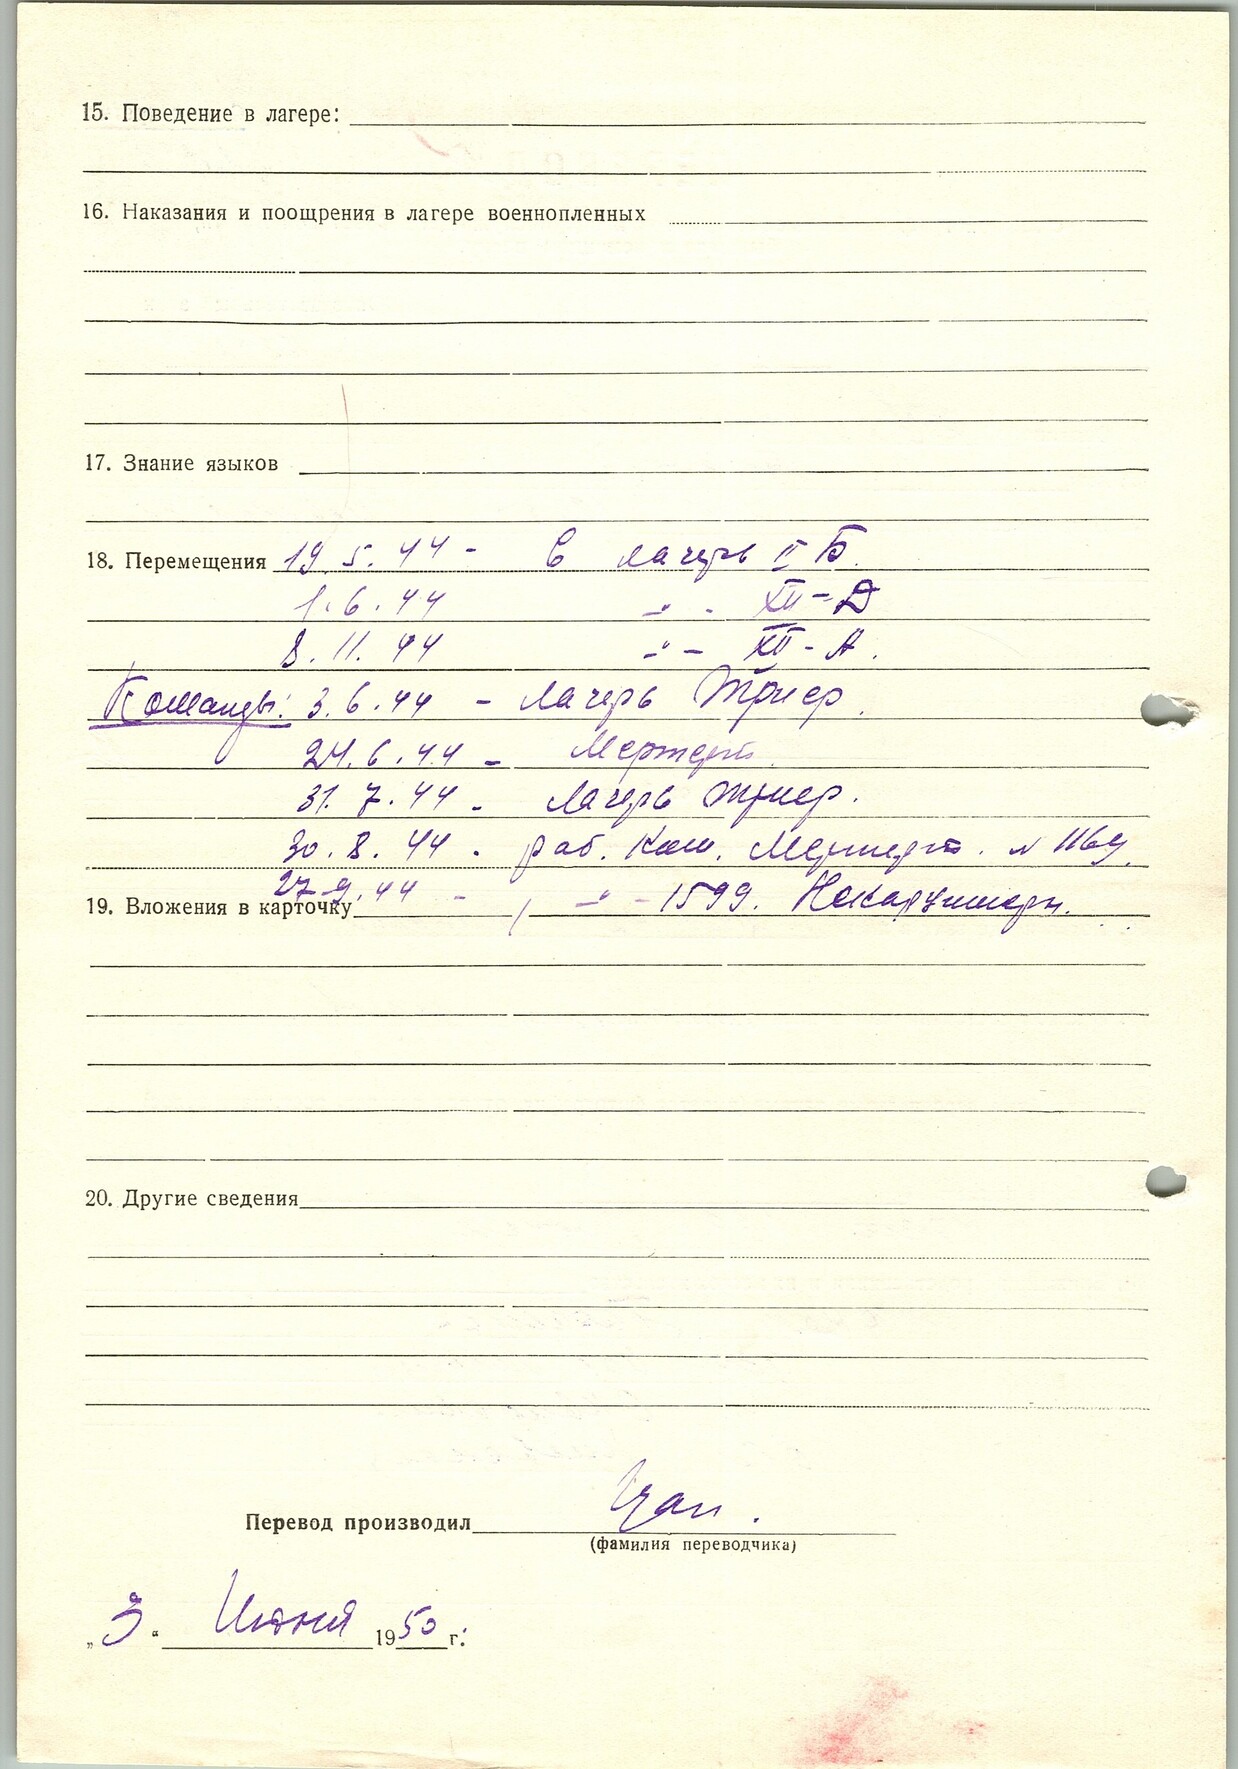 15. Поведение в лагере:
16. Наказания и поощрения в лагере военнопленных
17. Знание языков
18. Перемещения 19.5.44 - в лагерь II Б.
1.6.44 -"- XII-D
8.11.44 -"- XII-А.
Команды: 3.6.44 - лагерь Трир.
24.6.44 - Мертерт.
31.7.44 - лагерь Трир.
30.8.44 - раб. ком. Мертерт. № 1169.
27.9.44 - , -"- 1599.
19. Вложения в карточку
20. Другие сведения
Перевод производил
(фамилия переводчика)
„3“ Июня 1950 г.